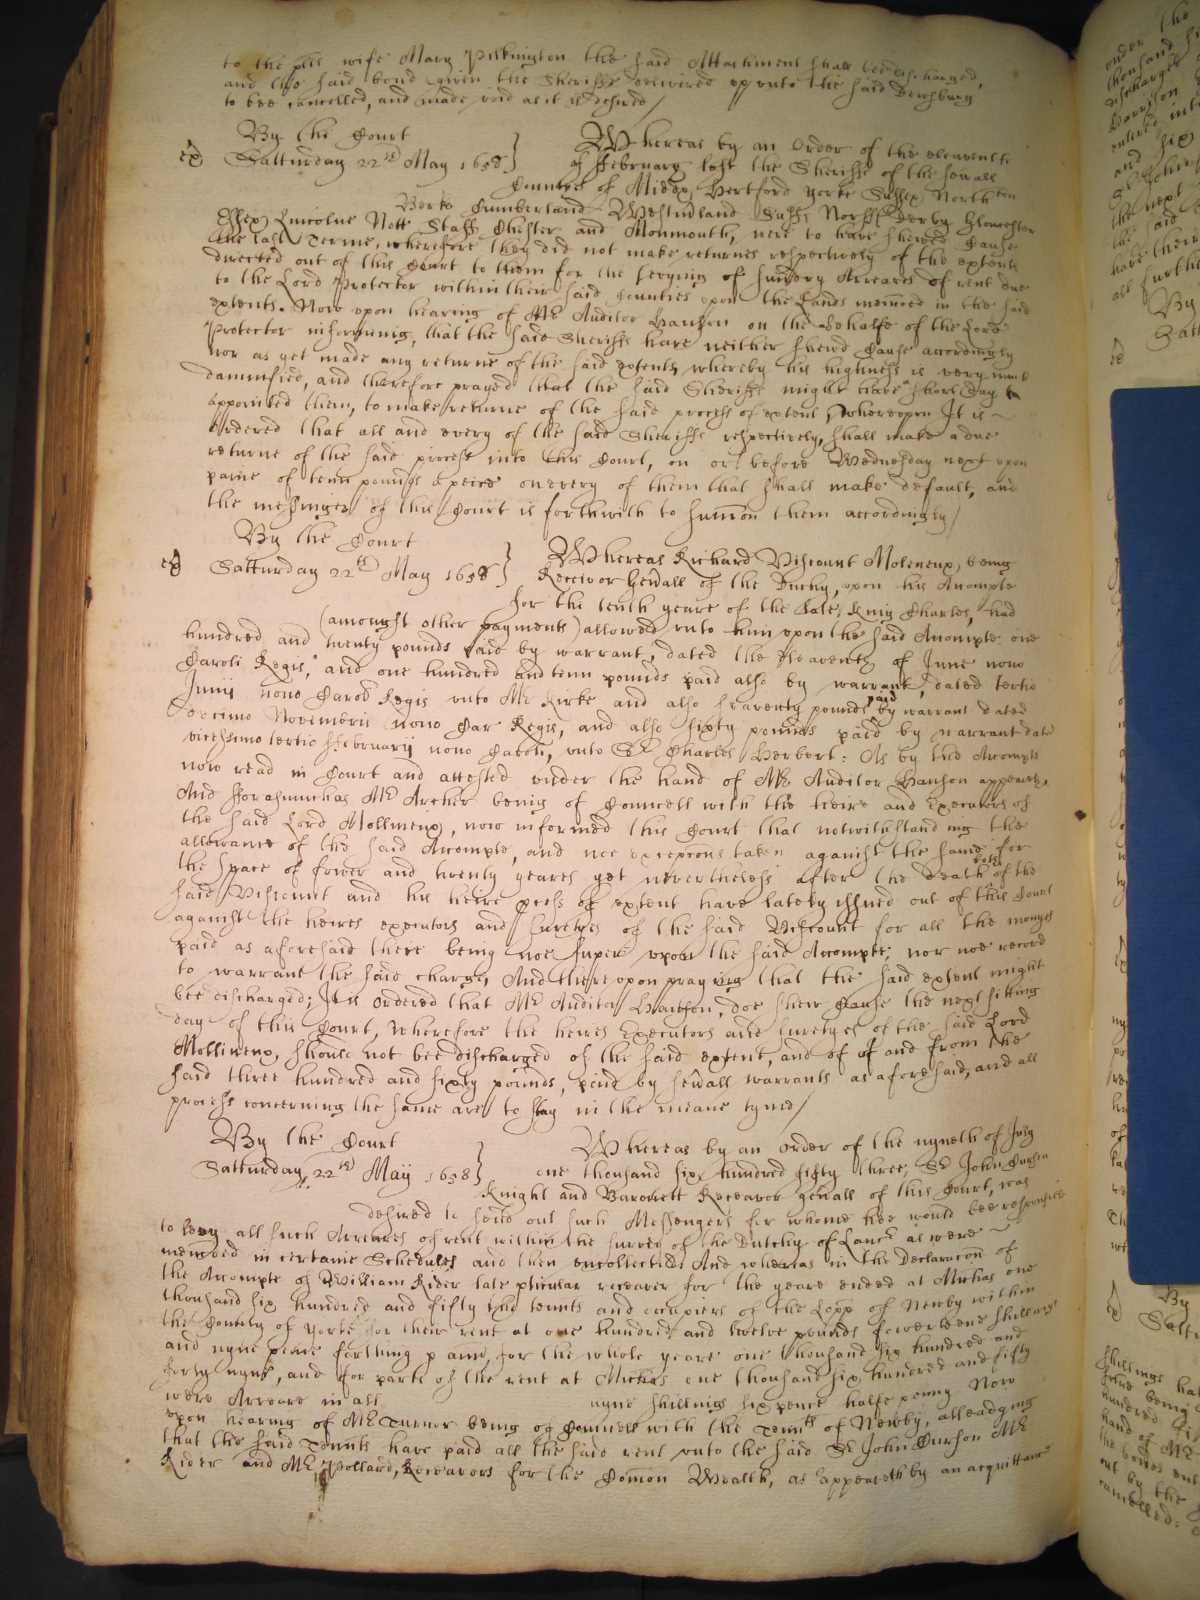 to the plts wife Mary Pilkington the said Attachment shall bee discharged,
and the said bond given the Sheriffe delivered upp unto the said Dewsbury
to bee cancelled, and made void as it is desired /
By the Court
ex Satturday 22th May 1658 } Whereas by an Order of the eleaventh
of February last the Sheriffs of the sevall
Counties of Middx Hertford Yorke Sussex Northton
Berks Cumberland Westmland Suff Norff Derby Glowcester
Essex Lincolne Nott Staff Chester and Monmouth, were to have shewed Cause
the last Terme, wherefore they did not make returnes respectively of the extents
directed out of this Court to them for the levying of sundry Arreares of rent due
to the Lord Protector within their said Counties upon the Lands menconed in the said
extents. Now upon hearing of Mr Auditor Hanson on the behalfe of the Lord
Protector informing, that the said Sheriffs have neither shewd Cause accordingly
nor as yet made any returne of the said extents, whereby his highness is very much
damnified, and therefore prayed that the said Sheriffs might have a short day
appointed them, to make returne of the said process of extent, whereupon It is
ordered that all and every of the said Sheriffs respectively, shall make a due
returne of the said process into this Court, on or before Wednesday next upon
paine of tenn pounds a peice on every of them that shall make default, and
the messinger of this Court is forthwith to sumon them accordingly /
By the Court
ex Satturday 22th May 1658 } Whereas Richard Viscount Molineux, being
Receivor Genall of the Duchy, upon his Accompte
for the tenth yeare of the late King Charles, had
(amongst other payments) allowed unto him upon the said Accompte one
hundred and twenty pounds paid by warrant, dated the eleaventh of June nono
Caroli Regis, and one hundred and tenn pounds paid also by warrant, dated tertio
Junii nono Caroli Regis unto Mr Kirke and also seaventy pounds paid by warrant dated
decimo Novembris nono Car Regis, and also sixty pounds paid by warrant dated
vicessimo tertio ffebruarij nono Caroli, unto Sr Charles Herbert: As by the Accompte
now read in Court and attested under the hand of Mr Auditor Hanson appeareth,
And Forasmuch as Mr Archer being of Councell with the heires and Executors of
the said Lord Mollineux, now informed this Court that notwithstanding the
allowance of the said Accompte, and noe excepcons taken against the same for
the space of fower and twenty yeares yet nevertheless after the death both of the
said Viscount and his heire process of extent have lately issued out of this Court
against the heires executors and suretyes of the said Viscount for all the monyes
paid as aforesaid there being noe super upon the said Accompte; nor noe record
to warrant the said charge, And thereupon praying that the said extent might
bee discharged; It is Ordered that Mr Auditor Hanson, doe shew Cause the next sitting
day of this Court, Wherefore the heires Executors and suretyes of the said Lord
Mollineux, should not bee discharged of the said extent, and of of and from the
said three hundred and sixty pounds, paid by sevall warrants as aforesaid, and all
process concerning the same are to stay in the meane tyme /
By the Court
Satturday 22th May 1658 } Whereas by an order of the nyneth of July
one thousand six hundred fifty three, Sr John Curson
Knight and Baronett Receavor genall of this Court, was
desired to send out such Messengers for whome hee would bee responsible
to levy all such Arreares of rent within the survey of the Dutchy of Lancr as were
menconed in certaine Schedules and then uncollected And whereas in the Declaracon of
the Accompte of William Rider late pticular receaver for the yeare ended at Michas one
thousand six hundred and fifty the tennts and occupiers of the Lopp of Newby within
the County of Yorke for their rent at one hundred and twelve pounds fowerteene shillings
and nyne pence farthing p ann, for the whole yeare one thousand six hundred and
forty nyne, and for parte of the rent at Michas one thousand six hundred and fifty
were Arreare in all nyne shillings six pence halfe penny Now
upon hearing of Mr Turner being of Councell with the Tennts of Newby, alleadging
that the said Tennts have paid all the said rent unto the said Sr John Curson Mr
Rider and Mr Pollard, Receavors for the Comon Wealth, as appeareth by an acquittance